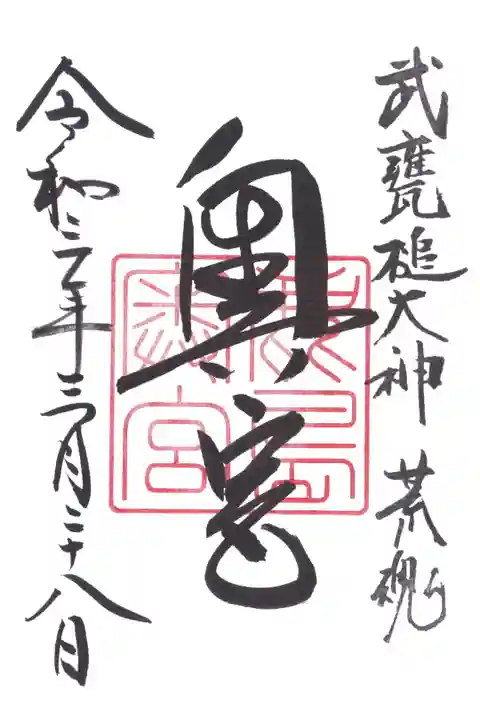 武甕槌大神 荒魂
奥宮
鹿島奥宮
令和三年三月二十八日